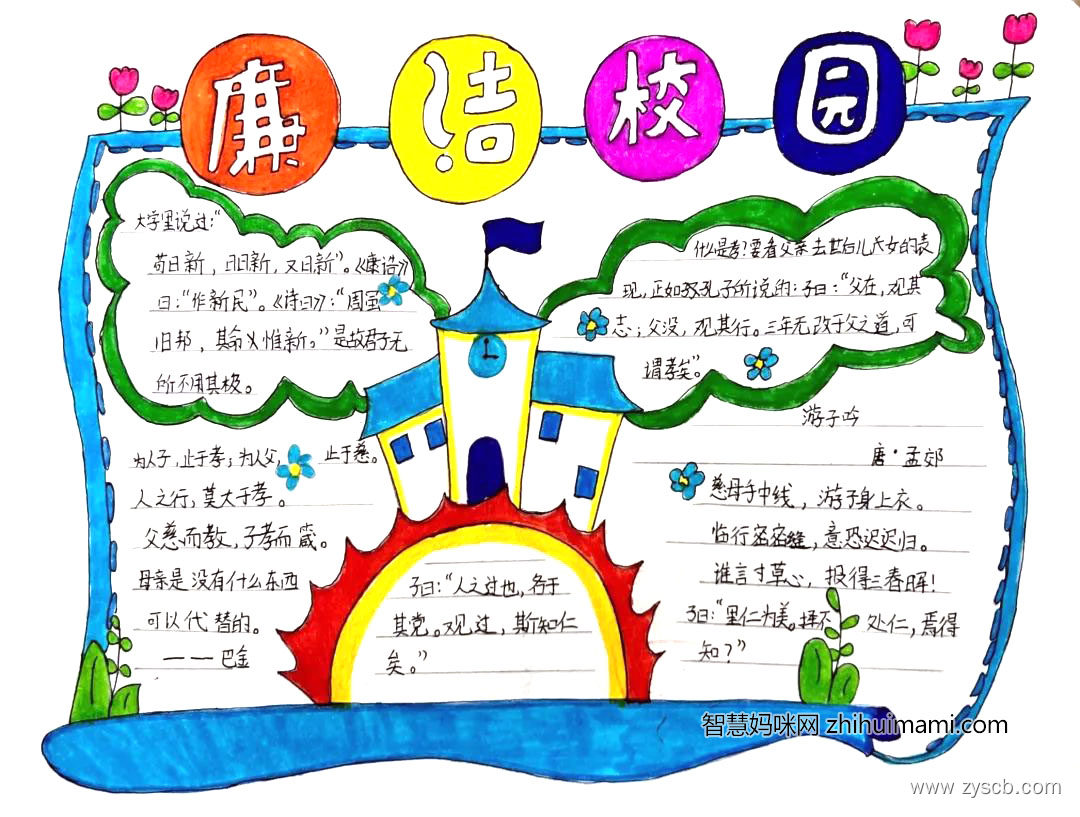 廉洁校园
大学里说过:“
苟日新，日日新，又日新”。《康诰》
曰:“作新民”。《诗曰》:“周虽
旧邦，其命义惟新。”是故君子无
所不用其极。
什么是孝?要看父亲去世后儿大女的表
现，正如孔子所说的:子曰:“父在，观其
志；父没，观其行。三年无改于父之道，可
谓孝矣”。
为人子，止于孝；为人父，止于慈。
人之行，莫大于孝。
父慈而教，子孝而箴。
母亲是没有什么东西
可以代替的。
——巴金
子曰:“人之过也，各于
其党。观过，斯知仁
矣。”
游子吟
唐·孟郊
慈母手中线，游子身上衣。
临行密密缝，意恐迟迟归。
谁言寸草心，报得三春晖！
子曰:“里仁为美。择不处仁，焉得
知？”
智慧妈咪网 zhihuimami.com
www.zyscb.com